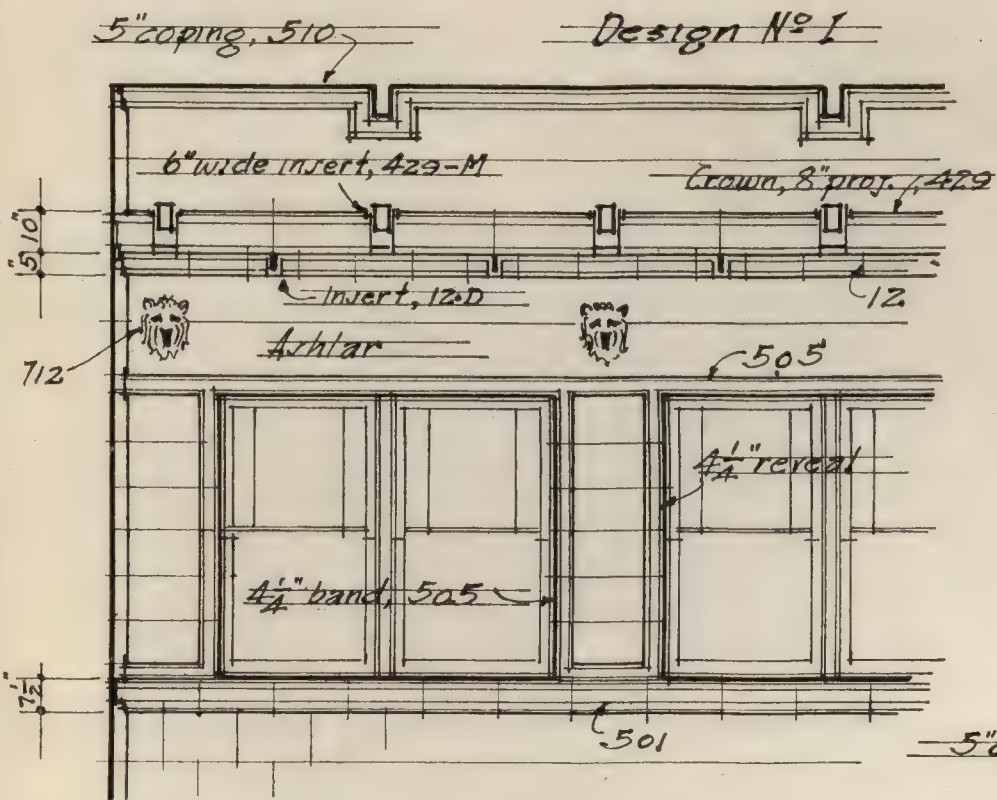 5" coping, 510
Design Nº 1
6" wide insert, 429-M
Crown, 8" proj., 429
10"
5"
insert, 12-D
12
712
Ashlar
505
4 1/4" reveal
4 1/4" band, 505
7 1/2"
501